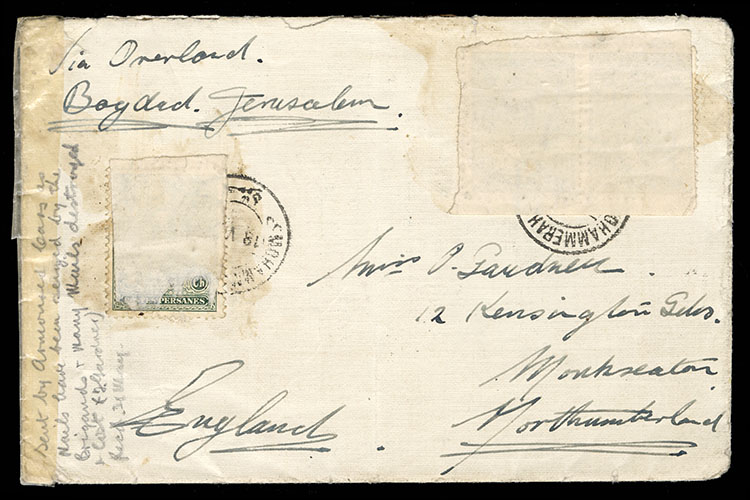 Via Overland.
Bagdad. Jerusalem.
MOHAMMERAH
MOHAM
PERSANES
Miss P. Gardner
12 Kensington Gdns.
Monkseaton
Northumberland
England.
Sent by Armoured Cars as
Mails have been seized by the
Brigands & Many Mails destroyed
& lost
Recd 31 May.